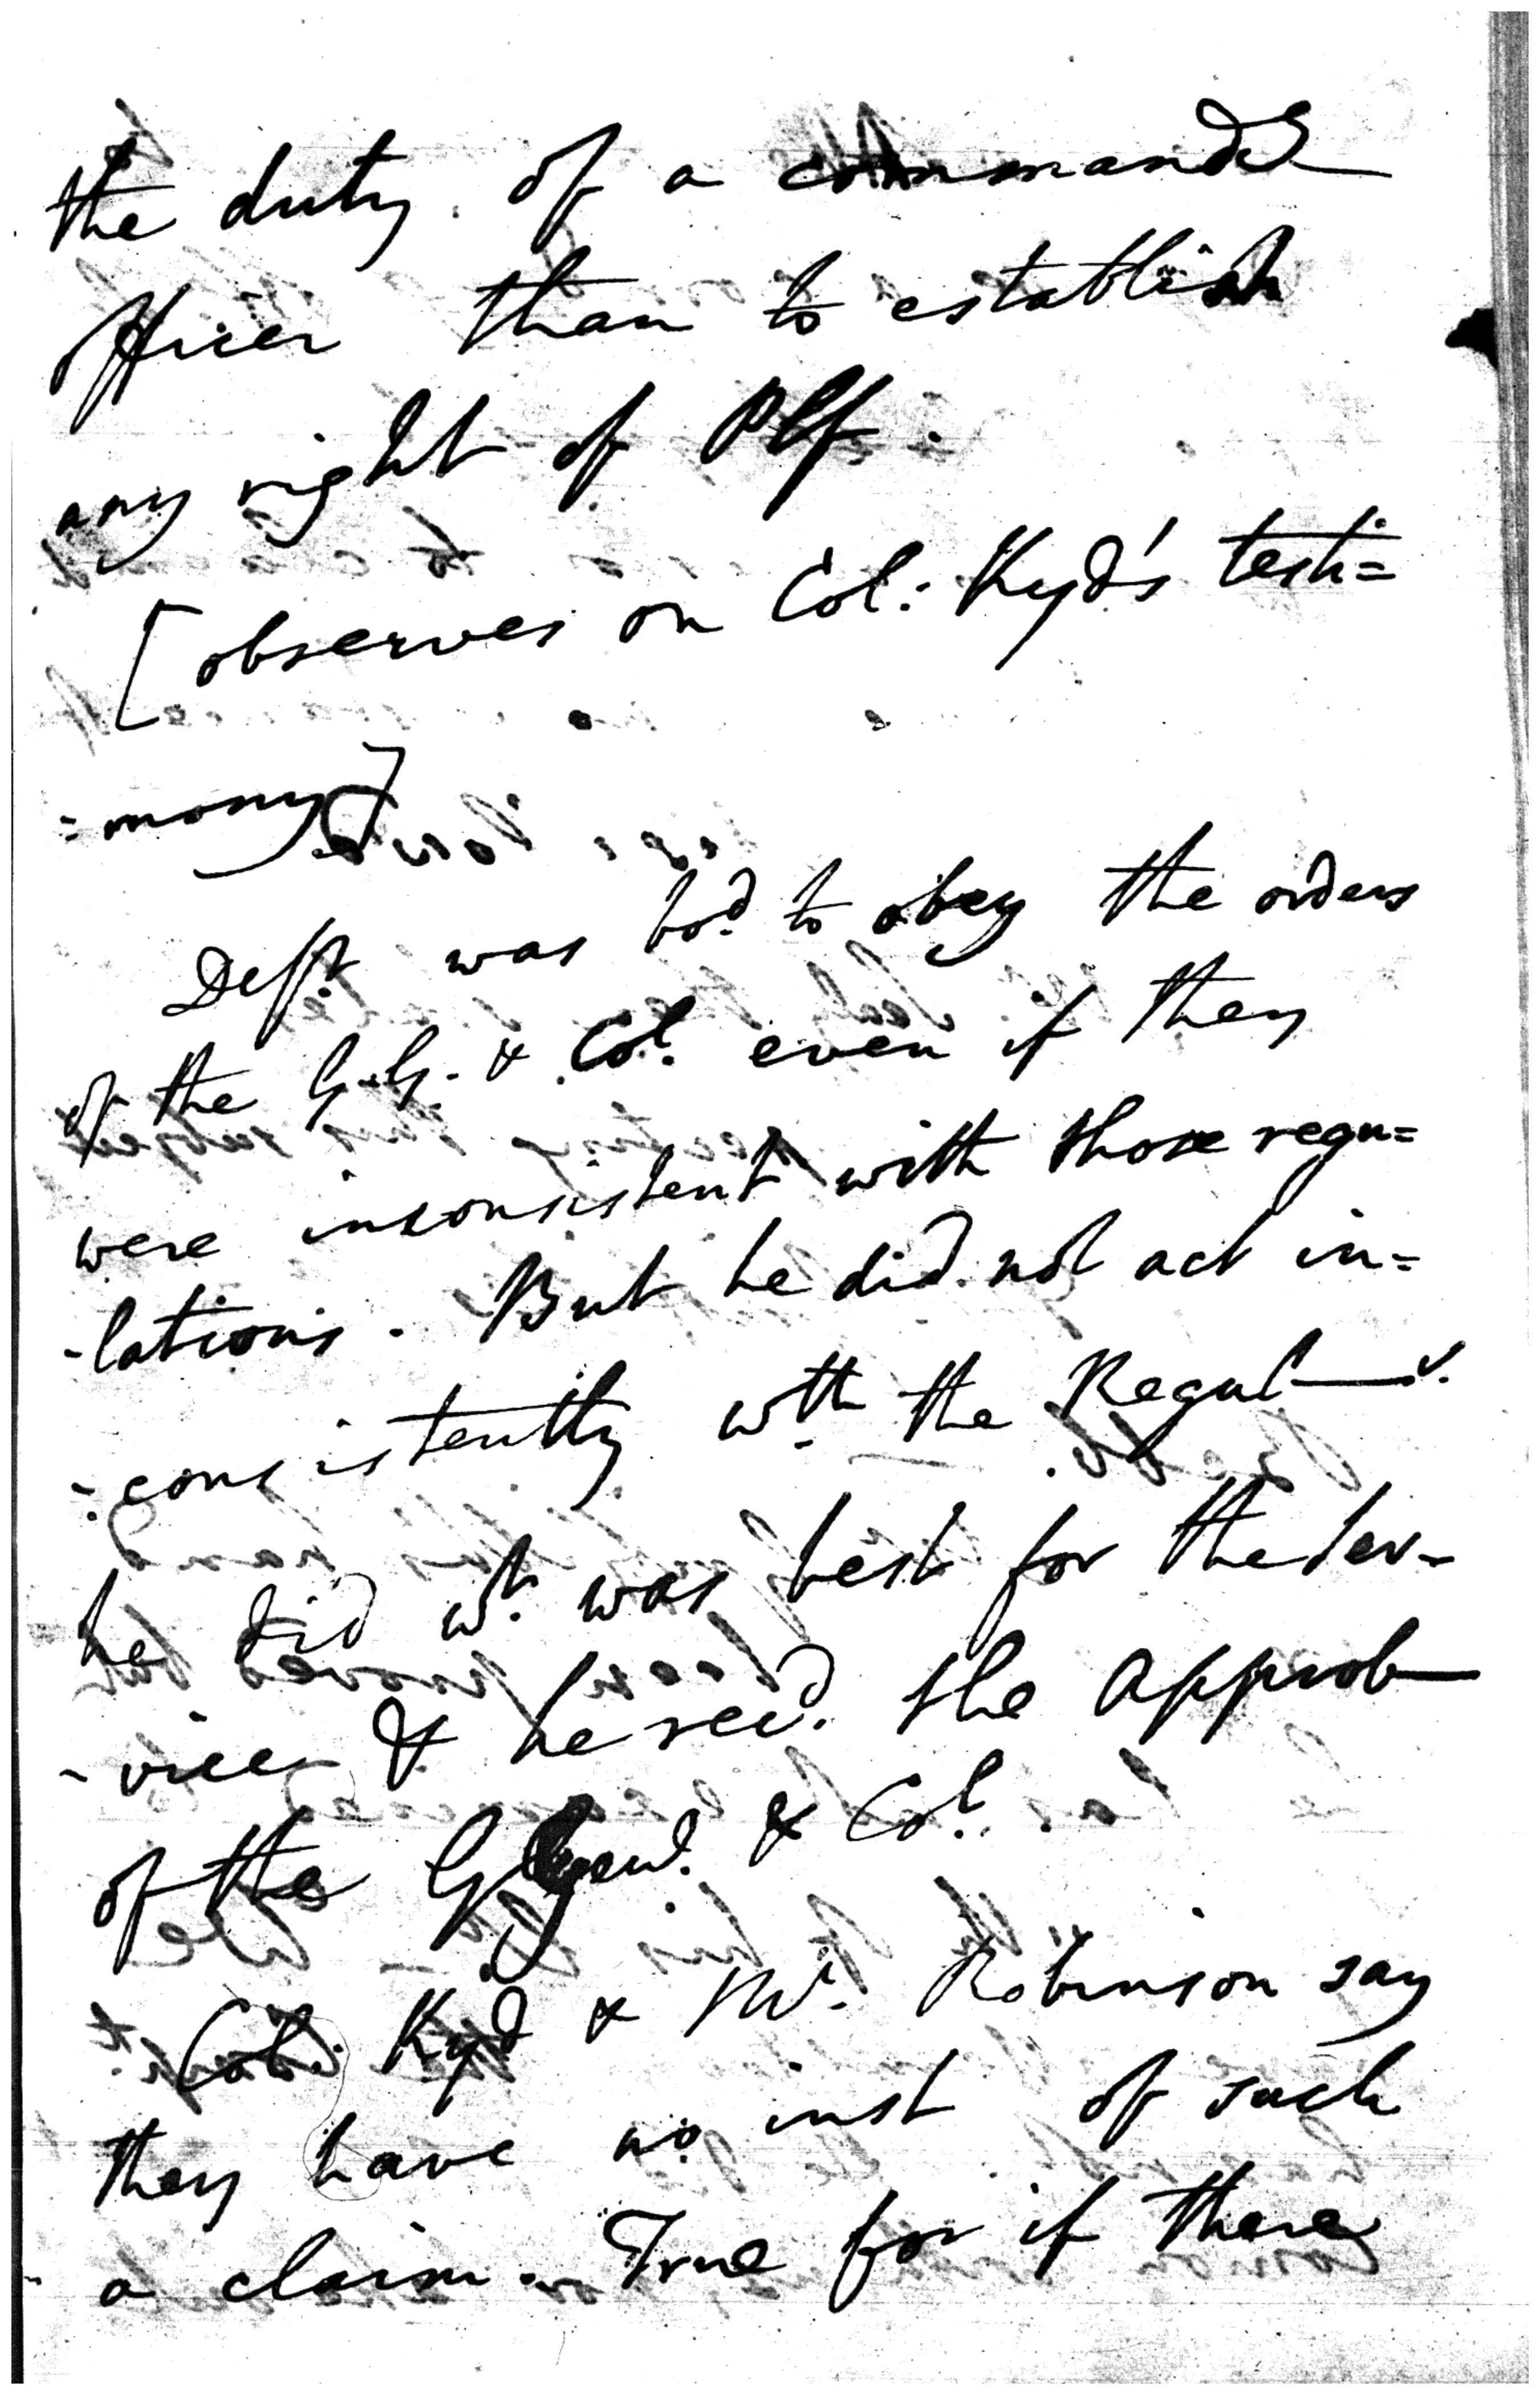 the duty of a command^g
officer than to establish
any right of Plf.
[observes on Col: Kyd's testi=
=mony]
Deft. was bod. to obey the orders
of the G.G. & Col. even if they
were inconsistent with those regu=
-lations. But he did not act in=
=consistently wth the Regul—s.
he did wt. was best for the ser-
-vice & he recd. the approb—
of the G & Col.
Col. Kyd & Mr. Robinson say
they have no inst of such
a claim. True for if there